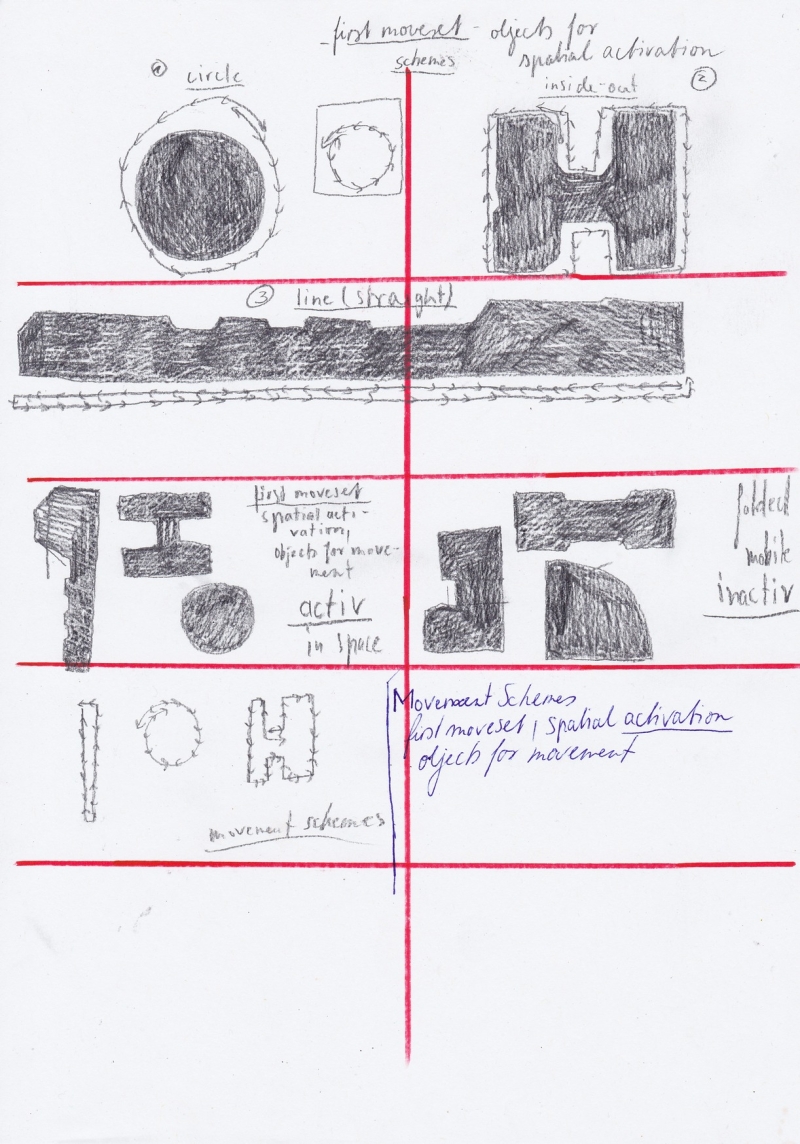 first moveset - objects for
spatial activation
schemes
1 circle
inside-out 2
3 line (straight)
first moveset
spatial acti-
vation,
objects for move-
ment
activ
in space
folded
mobile
inactiv
Movement Schemes
first moveset, spatial activation
objects for movement
movement schemes